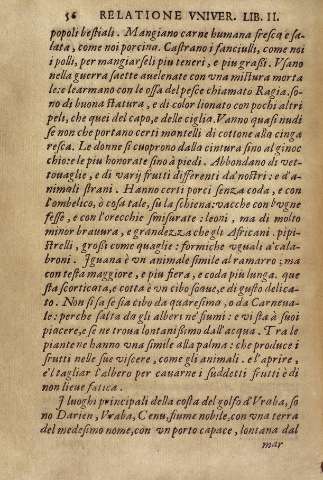 56 RELATIONE VNIVER. LIB. II.
popoli bestiali. Mangiano carne humana fresca e sa-
lata, come noi porcina. Castrano i fanciulli, come noi
i polli, per mangiarseli piu teneri, e piu grassi. Vsano
nella guerra saette auelenate con vna mistura morta
le: e le armano con le ossa del pesce chiamato Ragia. so-
no di buona statura, e di color lionato con pochi altri
peli, che quei del capo, e delle ciglia. Vanno quasi nudi
se non che portano certi montelli di cottone alla cinga
resca. Le donne si cuoprono dalla cintura sino al ginoc
chio: e le piu honorate sino à piedi. Abbondano di vet-
touaglie, e di varij frutti differenti da' nostri: e d'a-
nimali strani. Hanno certi porci senza coda, e con
l'ombelico, ò cosa tale, su la schiena: vacche con l'vgne
fesse, e con l'orecchie smisurate: leoni, ma di molto
minor brauura, e grandezza che gli Africani. pipi-
strelli, grossi come quaglie: formiche vguali a' cala-
broni. Iguana è vn animale simile al ramarro; ma
con testa maggiore, e piu fiera, e coda piu lunga. que
sta scorticata, e cotta è vn cibo soaue, e di gusto delica-
to. Non si sa se sia cibo da quaresima, o da Carneua-
le: perche salta da gli alberi ne' fiumi: e vi sta à suoi
piacere, e se ne troua lontanissimo dall'acqua. Tra le
piante ne hanno vna simile alla palma: che produce i
frutti nelle sue viscere, come gli animali. e l'aprire,
e'l tagliar l'albero per cauarne i suddetti frutti è di
non lieue fatica.
I luoghi principali della costa del golfo d'Vraba, so
no Darien, Vraba, Cenu, fiume nobile, con vna terra
del medesimo nome, con vn porto capace, lontana dal
mar